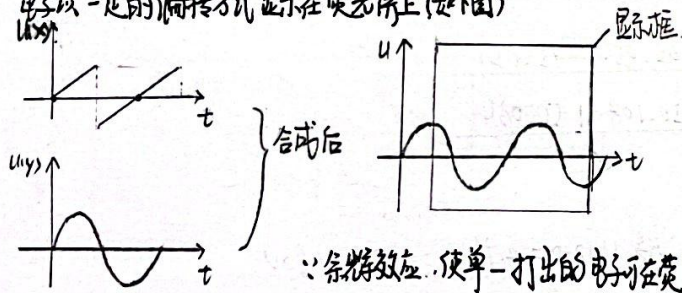 电子以一定的偏转方式显示在荧光屏上(如下图)
U(x)
t
U(y)
t
合成后
U
显示框
t
∵余辉效应,使单一打出的电子可在荧